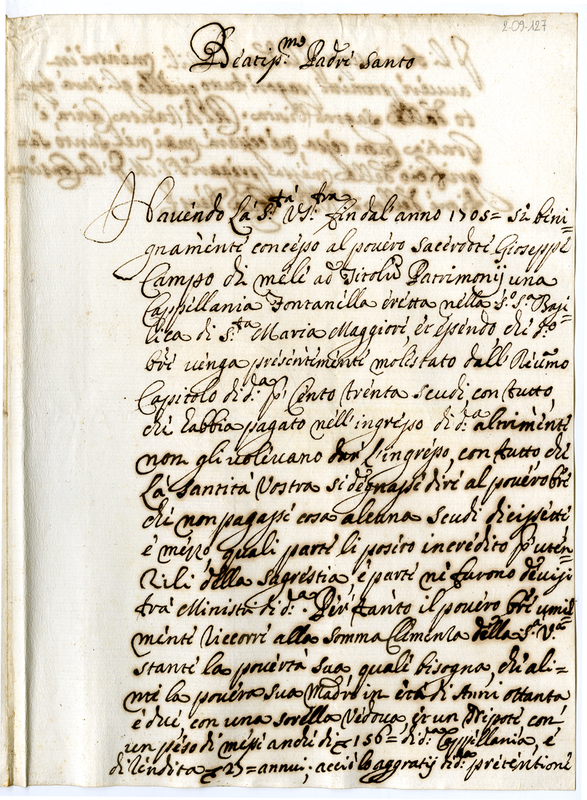 2-09-127
Beatiss.mo Padre Santo
Havendo la S.tà V.stra fin dal anno 1705= si beni=
gnamente concesso al povero sacerdote Gioseppe
Campo di mele ad Titolũ Patrimonij una
Cappellania Fontanella eretta nella S.a Basi=
lica di S.ta Maria Maggiore et essendo che q.o
Ore venga presentemente molestato dall Re͠umo
Capitolo di d.a p. Cento trenta scudi con tutto
che habbia pagato nell'ingresso di d.a altrimente
non gli volevano dar l'ingresso, con tutto che
La Santità Vostra si degnasse dire al povero Ore
che non pagasse cosa alcuna scudi diecisette
e mezzo quali parte li posero in credito p. uten=
zili della sagrestia, e parte ne furono devisi
trà Ministri di d.a. Per tanto il povero Ore umil
mente riccorre alla somma Clemenza della S.a V.a
stante la povertà sua quali bisogna, che ali=
menti la povera sua Madre in età di Anni ottanta
e dui, con una sorella Vedova, et un Nipote con
un peso di messe anche di 156= di d.a Cappellania, e
di rendita 27= annui; acciò lo aggratij di d.a pretentione